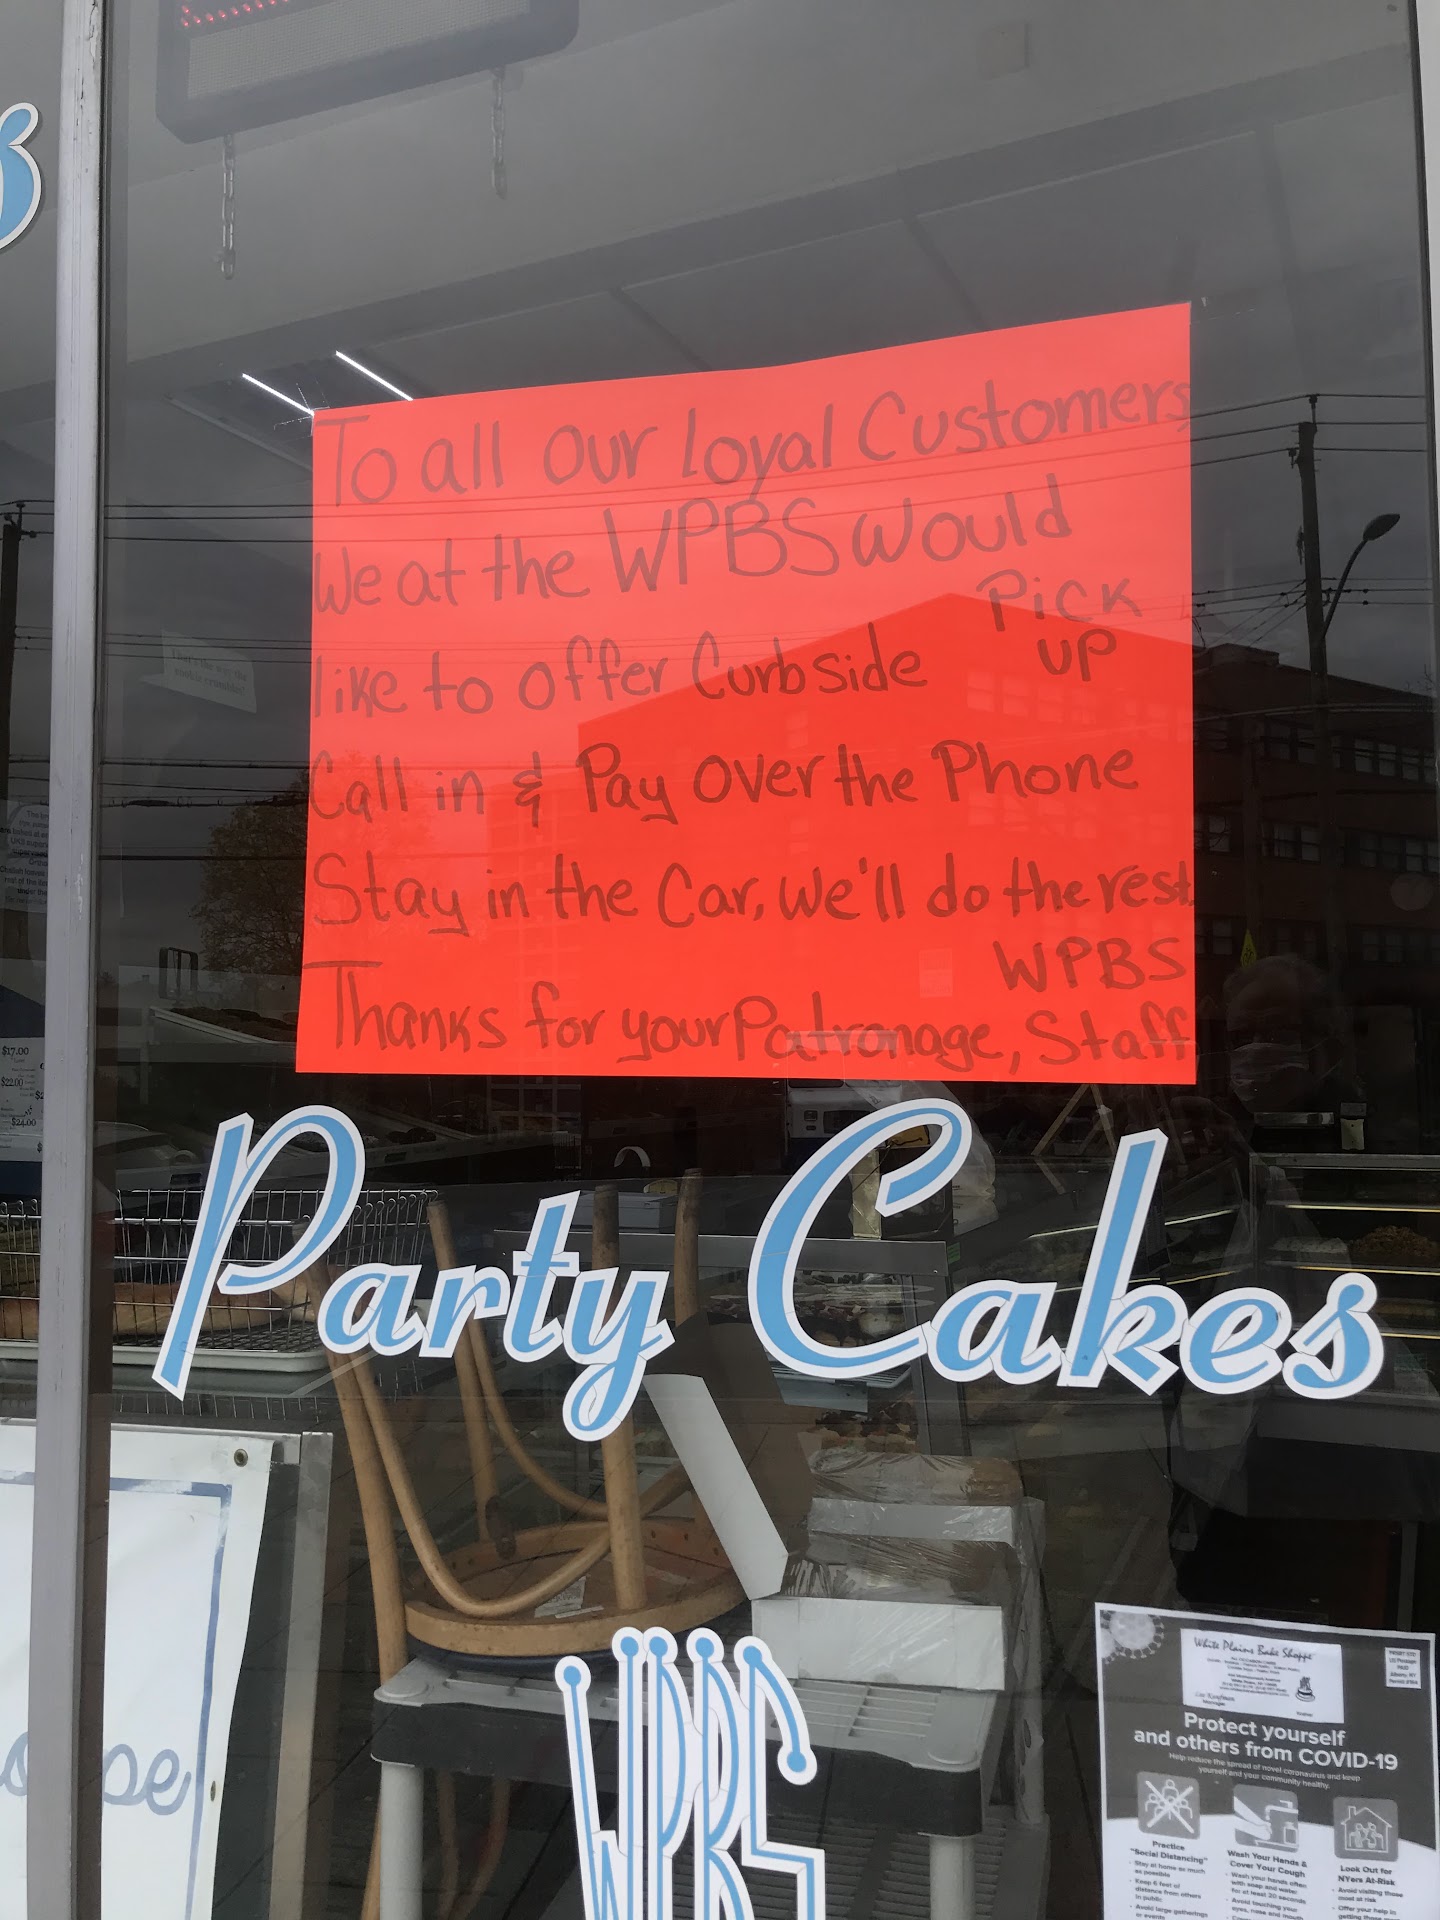 To all our loyal Customers,
We at the WPBS would
like to offer Curbside Pick
up
Call in & Pay over the Phone
Stay in the Car, We'll do the rest.
Thanks for your Patronage, WPBS
Staff
That's the way the
cookie crumbles!
$17.00
$22.00
$24.00
Party Cakes
WPBS
White Plains Bake Shoppe
Protect yourself
and others from COVID-19
Help reduce the spread of novel coronavirus and keep
yourself and your community healthy.
Practice
"Social Distancing"
- Stay at home as much
as possible
- Keep 6 feet of
distance from others
in public
- Avoid large gatherings
or events
Wash Your Hands &
Cover Your Cough
- Wash your hands often
with soap and water
for at least 20 seconds
- Avoid touching your
eyes, nose and mouth
Look Out for
NYers At-Risk
- Avoid visiting those
most at risk
- Offer your help in